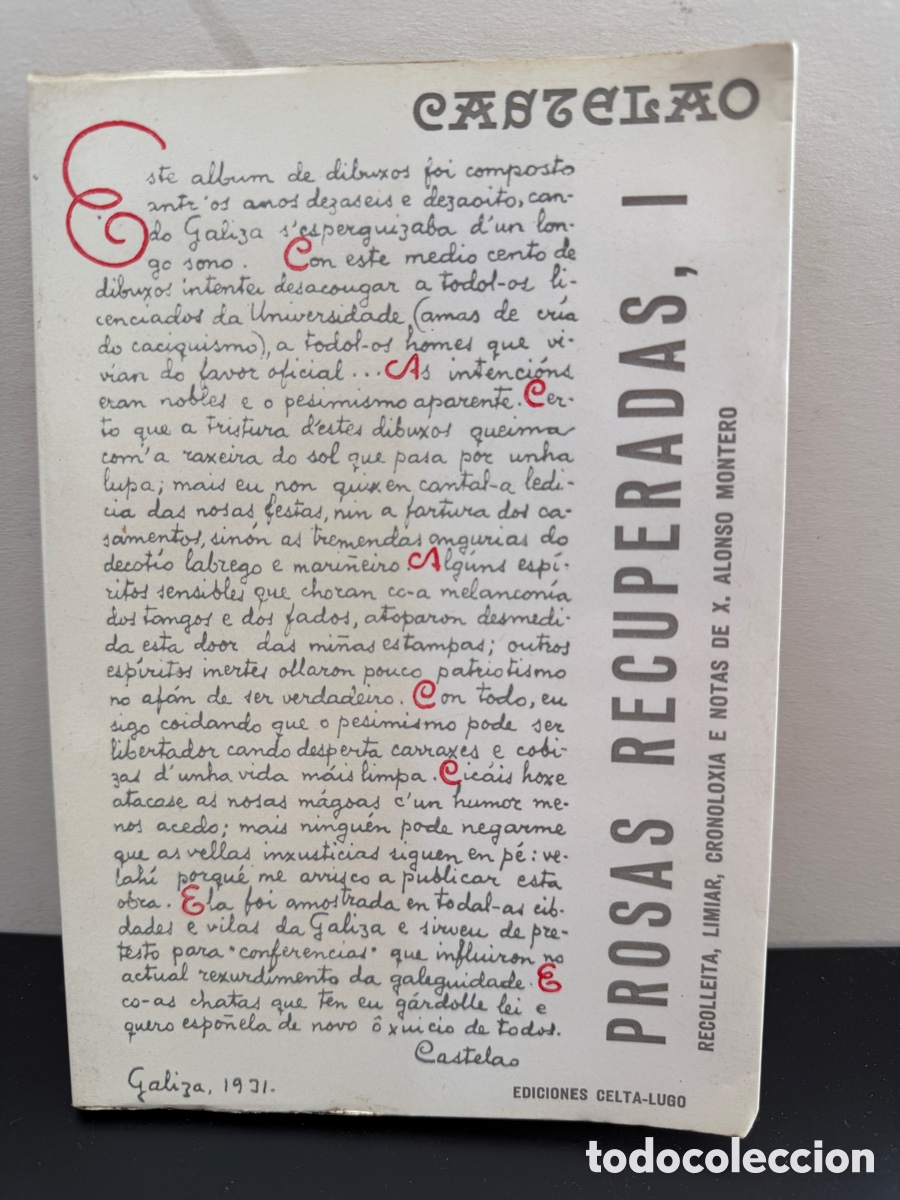 CASTELAO
Este album de dibuxos foi composto
antr'os anos dezaseis e dezaoito, can-
do Galiza s'esperguizaba d'un lon-
go sono. Con este medio cento de
dibuxos intentei desacougar a todol-os li-
cenciados da Universidade (amas de cría
do caciquismo), a todol-os homes que vi-
vían do favor oficial... As intencións
eran nobles e o pesimismo aparente. Cer-
to que a tristura d'estes dibuxos queima
com'a raxeira do sol que pasa por unha
lupa; mais eu non quixen cantal-a ledi-
cia das nosas festas, nin a fartura dos ca-
samentos, sinón as tremendas angurias do
decotío labrego e mariñeiro. Algúns espí-
ritos sensibles que choran co-a melanconía
dos tangos e dos fados, atoparon desmedi-
da esta door das miñas estampas; outros
espíritos inertes ollaron pouco patriotismo
no afán de ser verdadeiro. Con todo, eu
sigo coidando que o pesimismo pode ser
libertador cando desperta carraxes e cobi-
zas d'unha vida máis limpa. Cicáis hoxe
atacase as nosas mágoas c'un humor me-
nos acedo; mais ninguén pode negarme
que as vellas inxusticias siguen en pé: ve-
lahí porqué me arrisco a publicar esta
obra. Ela foi amostrada en todal-as cib-
dades e vilas da Galiza e sirveu de pre-
testo para "conferencias" que influiron no
actual rexurdimento da galeguidade. E
co-as chatas que ten eu gárdolle lei e
quero espoñela de novo ô xuicio de todos.
Castelao
Galiza, 1931.
PROSAS RECUPERADAS, I
RECOLLEITA, LIMIAR, CRONOLOXIA E NOTAS DE X. ALONSO MONTERO
EDICIONES CELTA-LUGO
todocoleccion